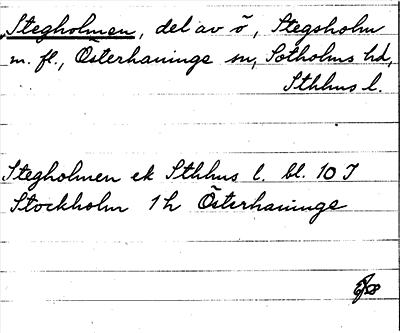 Stegholmen, del av ö, Stegsholm
m. fl., Österhaninge sn, Sotholms hd,
Sthlms l.
Stegholmen ek Sthlms l. bl. 10 I
Stockholm 1 h Österhaninge